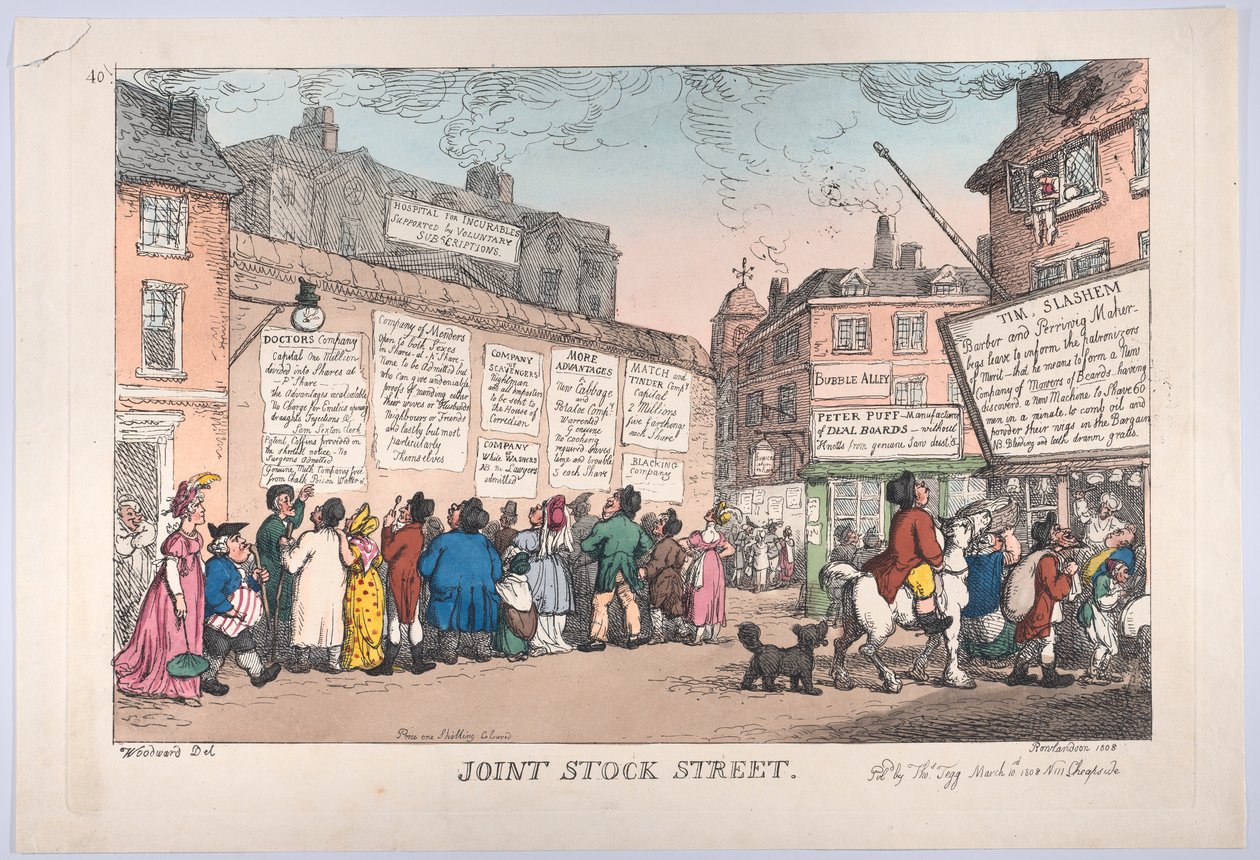 40
HOSPITAL FOR INCURABLES
Supported by VOLUNTARY
SUBSCRIPTIONS.
DOCTORS Company
Capital One Million
devided into Shares at
- pr Share -
the Advantages incalculable
No Charge for Emetics opening
draughts Injections &c
Sam Sexton Clerk
Patent Coffins provided on
the shortest notice - No
Surgeons admitted
Genuine Milk Company free
from Chalk Poison Water &c
Company of Menders
Open to both Sexes
in Shares at pr Share -
None to be Admitted but
who can give undeniable
proofs of mending either
their wives or Husbands
Neighbours or Friends
and lastly but most
particularly
Themselves
COMPANY
OF
SCAVENGERS
Nightman
with all imposters
to be sent to
the House of
Corrcdion
COMPANY
OF
White Washers
NB no Lawyers
admitted
MORE
ADVANTAGES
A
New Cabbage
and
Potatoe Compy
Warrented
Genuine
No Cooking
required saves
time and trouble
5 each Share
MATCH and
TINDER Compy
Capital
2 Millions
five farthings
each Share
BLACKING
Company
BUBBLE ALLEY
PETER PUFF - Manufacturer
of DEAL BOARDS - without
Knotts from genuine Saw dust &c
TIM. SLASHEM
Barber and Perriwig Maker-
begs leave to inform the patronizers
of Merit - that he means to form a New
Company of Mowers of Beards. having
discoverd a New Machine to Shave 60
men in a minute. to comb oil and
powder their wigs in the Bargain
NB. Bleeding and teeth drawn gratis.
Price one Shilling Coloured
Woodward Del
Rowlandson 1808
JOINT STOCK STREET.
Pubd by Thos Tegg March 10d 1808 N111 Cheapside